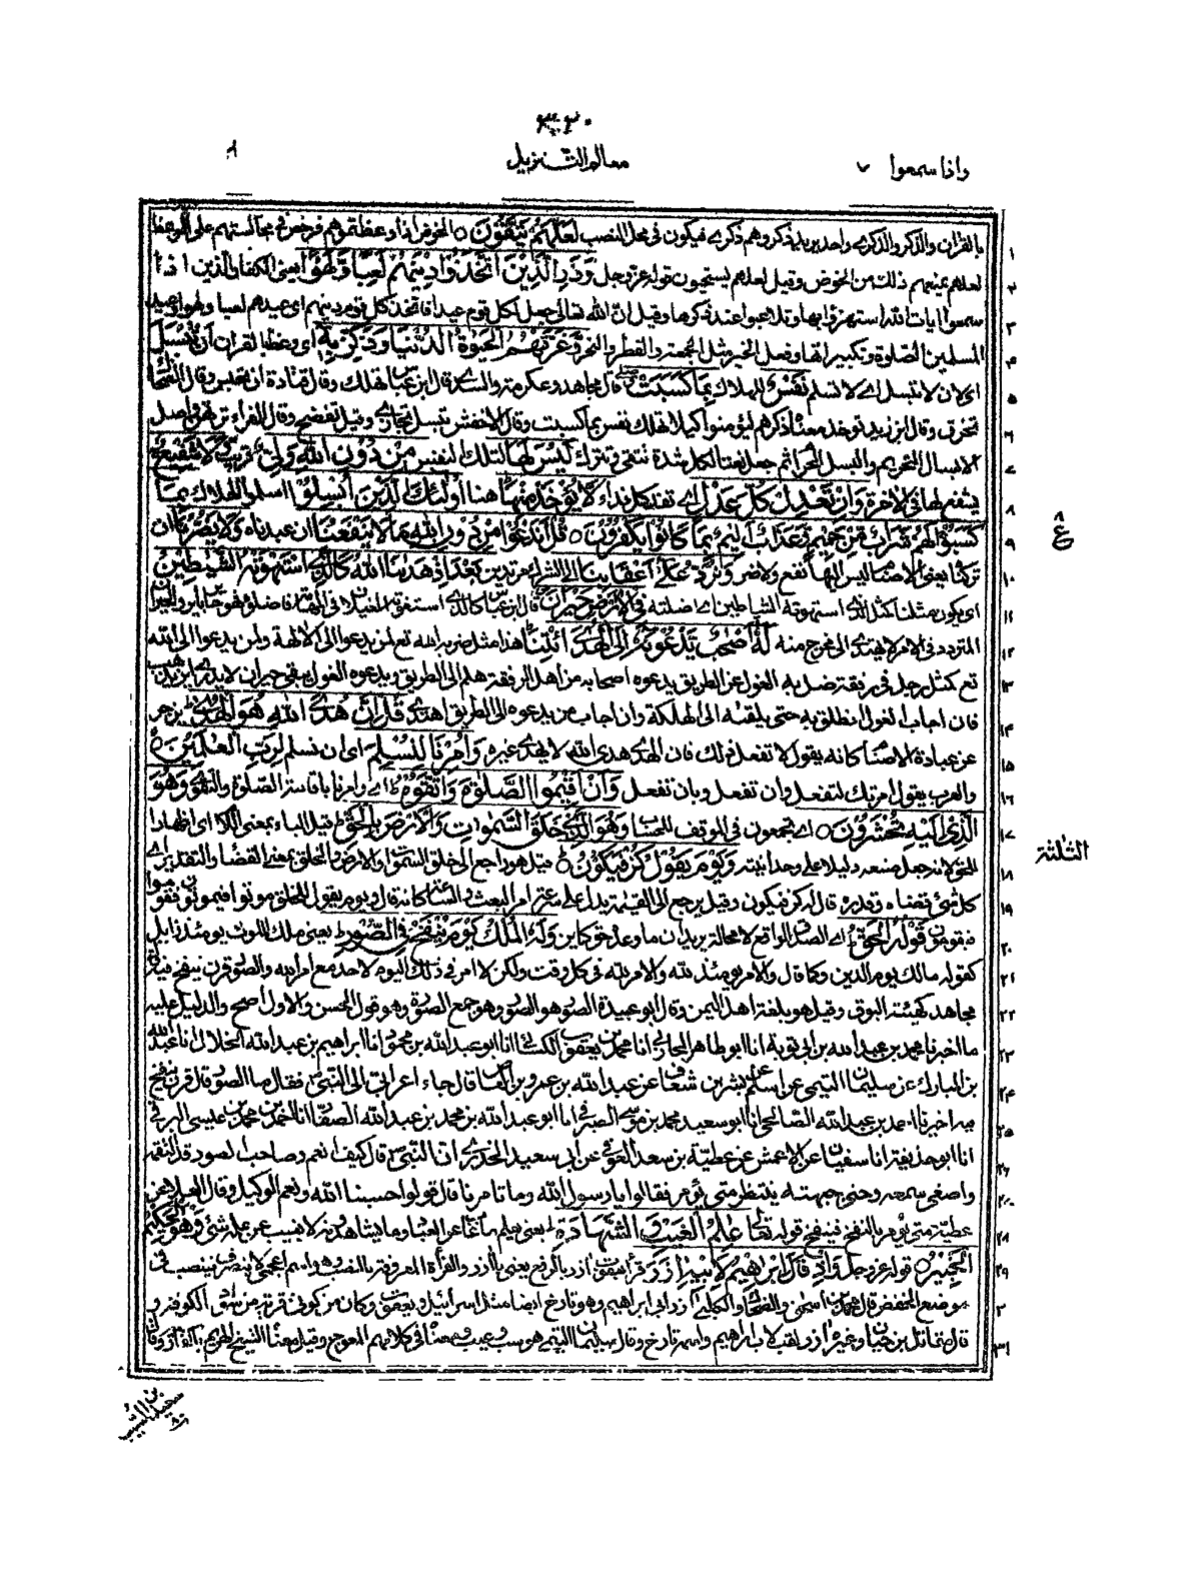 ٣٢٠
واذا سمعوا ٧
معالم التنزيل
٨
بالقران والذكر والذكرى واحد يريد ذكروهم ذكرى فيكون فى محل النصب لَعَلَّهُمْ يَتَّقُوْنَ ۝ الخوض اذا وعظتموهم فرخص فى مجالستهم على الوعظ ١
لعلهم يمنعهم ذلك من الخوض وقيل لعلهم يستحيون قوله عز وجل وَذَرِ الَّذِيْنَ اتَّخَذُوْا دِيْنَهُمْ لَعِبًا وَّلَهْوًا يعنى الكفار الذين اذا ٢
سمعوا ايات الله استهزؤا بها وتلاعبوا عند ذكرها وقيل ان الله تعالى جعل لكل قوم عيدا فاتخذ كل قوم دينهم اى عيدهم لعبا ولهوا وعيد ٣
المسلمين الصلوة وتكبيراتها وفعل الخير مثل الجمعة والفطر والنحر وَغَرَّتْهُمُ الْحَيٰوةُ الدُّنْيَا وَذَكِّرْ بِهٖ اى وعظ بالقران اَنْ تُبْسَلَ ٤
اى لان لا تبسل اى لا تسلم نَفْسٌ للهلاك بِمَا كَسَبَتْ قال مجاهد وعكرمة والسدى قال ابن عباس تهلك وقال قتادة ان تحبس وقال الضحاك ٥
تحرق وقال ابن زيد تؤخذ معناه ذكرهم ليؤمنوا كيلا تهلك نفس بما كسبت وقال الاخفش تبسل تجازى وقيل تفضح وقال الفراء ترتهن واصل ٦
الابسال التحريم والبسل الحرام ثم جعل نعتا لكل شدة تتقى وتترك لَيْسَ لَهَا لتلك النفس مِنْ دُوْنِ اللهِ وَلِيٌّ قريب وَّلَا شَفِيْعٌ ٧
يشفع لها فى الاخرة وَاِنْ تَعْدِلْ كُلَّ عَدْلٍ اى تفد كل فداء لَّا يُؤْخَذْ مِنْهَا هنا اُولٰٓئِكَ الَّذِيْنَ اُبْسِلُوْا اسلموا للهلاك بِمَا ٨
كَسَبُوْا لَهُمْ شَرَابٌ مِّنْ حَمِيْمٍ وَّعَذَابٌ اَلِيْمٌ بِمَا كَانُوْا يَكْفُرُوْنَ ۝ قُلْ اَنَدْعُوْا مِنْ دُوْنِ اللهِ مَا لَا يَنْفَعُنَا ان عبدناه وَلَا يَضُرُّنَا ان ٩
تركناه يعنى الاصنام ليس اليها نفع ولا ضر وَنُرَدُّ عَلٰٓى اَعْقَابِنَا الى الشرك مرتدين بَعْدَ اِذْ هَدٰىنَا اللهُ كَالَّذِى اسْتَهْوَتْهُ الشَّيٰطِيْنُ ١٠
اى يكون مثلنا كمثل الذى استهوته الشياطين اى اضلته فِى الْاَرْضِ حَيْرَانَ قال ابن عباس كالذى استفوته الغيلان فى المهامة فاضلوه فهو حائر والحيران ١١
المتردد فى الامر لا يهتدى الى مخرج منه لَهٗٓ اَصْحٰبٌ يَّدْعُوْنَهٗٓ اِلَى الْهُدَى ائْتِنَا هذا مثل ضربه الله تع لمن يدعو الى الالهة ولمن يدعوا الى الله ١٢
تع كمثل رجل فى رفقة ضل به الغول عن الطريق يدعوه اصحابه من اهل الرفقة هلم الى الطريق ويدعوه الغول فبقى حيران لا يدرى اين يذهب ١٣
فان اجاب الغول انطلق به حتى يلقيه الى الهلكة وان اجاب من يدعوه الى الطريق اهتدى قُلْ اِنَّ هُدَى اللهِ هُوَ الْهُدٰى يزجر ١٤
عن عبادة الاصنام كانه يقول لا تفعل ذلك فان الهدى هدى الله لا هدى غيره وَاُمِرْنَا لِنُسْلِمَ اى ان نسلم لِرَبِّ الْعٰلَمِيْنَ ۝ ١٥
والعرب يقول امرتك لتفعل وان تفعل وبان تفعل وَاَنْ اَقِيْمُوا الصَّلٰوةَ وَاتَّقُوْهُ اى وامرنا باقامة الصلوة والتقوى وَهُوَ ١٦
الَّذِىْٓ اِلَيْهِ تُحْشَرُوْنَ ۝ اى تجمعون فى الموقف للحساب وَهُوَ الَّذِىْ خَلَقَ السَّمٰوٰتِ وَالْاَرْضَ بِالْحَقِّ قيل الباء بمعنى اللام اى اظهارا ١٧
للحق لانه جعل صنعه دليلا على وحدانيته وَيَوْمَ يَقُوْلُ كُنْ فَيَكُوْنُ قيل هو راجع الى خلق السموات والارض والخلق بمعنى القضاء والتقدير اى ١٨
كل شئ قضاه وقدره قال له كن فيكون وقيل يرجع الى القيمة يدل على سرعة امر البعث والساعة كانه قال ويوم يقول للخلق موتوا فيموتون وقوموا ١٩
فيقومون قَوْلُهُ الْحَقُّ اى الصدق الواقع لا محالة يريد ان ما وعد حق كاين وَلَهُ الْمُلْكُ يَوْمَ يُنْفَخُ فِى الصُّوْرِ يعنى ملك الملوك يومئذ زايل ٢٠
كقوله مالك يوم الدين وكما قال والامر يومئذ لله والامر لله فى كل وقت ولكن لا امر فى ذلك اليوم لاحد مع امر الله والصور قرن ينفخ فيه قال ٢١
مجاهد كهيئة البوق وقيل هو بلغة اهل اليمن وقال ابو عبيدة الصور هو الصور وهو جمع الصورة وهو قول الحسن والاول اصح والدليل عليه ٢٢
ما اخبرنا محمد بن عبد الله بن ابى توبة انا ابو طاهر المحاربى انا محمد بن يعقوب الكسائى انا ابو عبد الله بن محمود انا ابراهيم بن عبد الله الخلال انا عبد الله ٢٣
بن المبارك عن سليمان التيمى عن اسلم عن بشر بن شغاف عن عبد الله بن عمرو بن العاص قال جاء اعرابى الى النبى فقال ما الصور قال قرن ينفخ ٢٤
فيه اخبرنا احمد بن عبد الله الصالحى انا ابو سعيد محمد بن موسى الصيرفى انا ابو عبد الله بن محمد بن عبد الله الصفار انا احمد بن محمد بن عيسى البرتى ٢٥
انا ابو حذيفة انا سفيان عن الاعمش عن عطية بن سعد العوفى عن ابى سعيد الخدرى ان النبى قال كيف انعم وصاحب الصور قد التقمه ٢٦
واصغى سمعه وحنى جبهته ينتظر متى يؤمر فقالوا يا رسول الله وما تامرنا قال قولوا حسبنا الله ونعم الوكيل وقال العلاء عن ٢٧
عطية متى يؤمر بالنفخ فينفخ قوله تعا عٰلِمُ الْغَيْبِ وَالشَّهَادَةِ يعنى يعلم ما غاب عن العباد وما يشاهدونه لا يغيب عن علمه شئ وَهُوَ الْحَكِيْمُ ٢٨
الْخَبِيْرُ ۝ قوله عز وجل وَاِذْ قَالَ اِبْرٰهِيْمُ لِاَبِيْهِ اٰزَرَ قرأ يعقوب ازر بالرفع يعنى يا ازر والقراءة المعروفة بالنصب وهو اسم اعجمى لا ينصرف فينصب فى ٢٩
موضع الخفض قال محمد بن اسحق والضحاك والكلبى ازر ابى ابراهيم وهو تارخ ايضا مثل اسرائيل ويعقوب وكان من كوثى قرية من سواد الكوفة و ٣٠
قال مقاتل بن حيان وغيره ازر لقب لاب ابراهيم واسمه تارخ وقال سليمان التيمى هو سب وعيب ومعناه فى كلامهم المعوج وقيل معناه الشيخ الهرم ٣١
ع
الثلثة